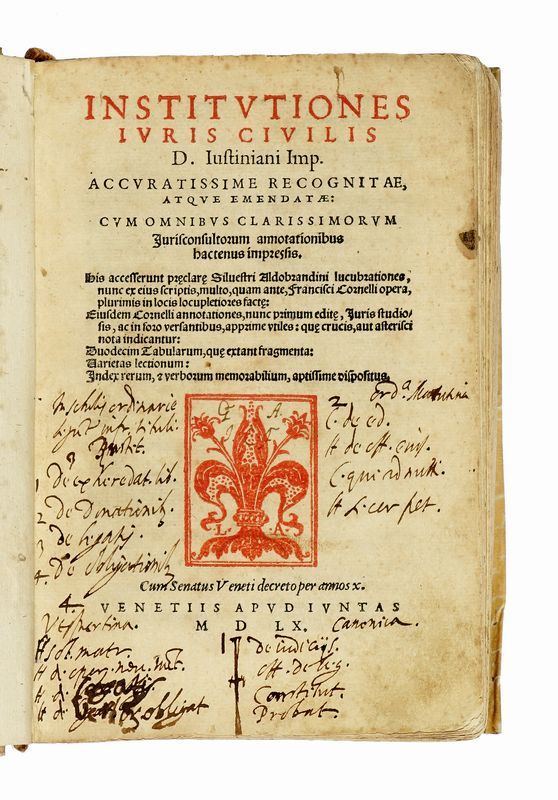 INSTITVTIONES
IVRIS CIVILIS
D. Iustiniani Imp.
ACCVRATISSIME RECOGNITAE,
ATQVE EMENDATÆ:
CVM OMNIBVS CLARISSIMORVM
Jurisconsultorum annotationibus
hactenus impressis.
His accesserunt pręclarę Siluestri Aldobrandini lucubrationes,
nunc ex eius scriptis, multo, quam ante, Francisci Cornelli opera,
plurimis in locis locupletiores factę:
Eiusdem Cornelli annotationes, nunc primum editę, Juris studio-
sis, ac in foro versantibus, apprime vtiles: quę crucis, aut asterisci
nota indicantur:
Duodecim Tabularum, quę extant fragmenta:
Uarietas lectionum:
Index rerum, & verborum memorabilium, aptissime dispositus.
ordinarie
2
C. de ed.
3
1 De exheredat. lib.
2 De Donationib.
3 De legatj.
4. De obligationib
L A
Cum Senatus Veneti decreto per annos x.
4.
VENETIIS APVD IVNTAS
Vespertina.
M D LX.
Canonica.
de iudicijs.
Constitut.
Probat.
obligat